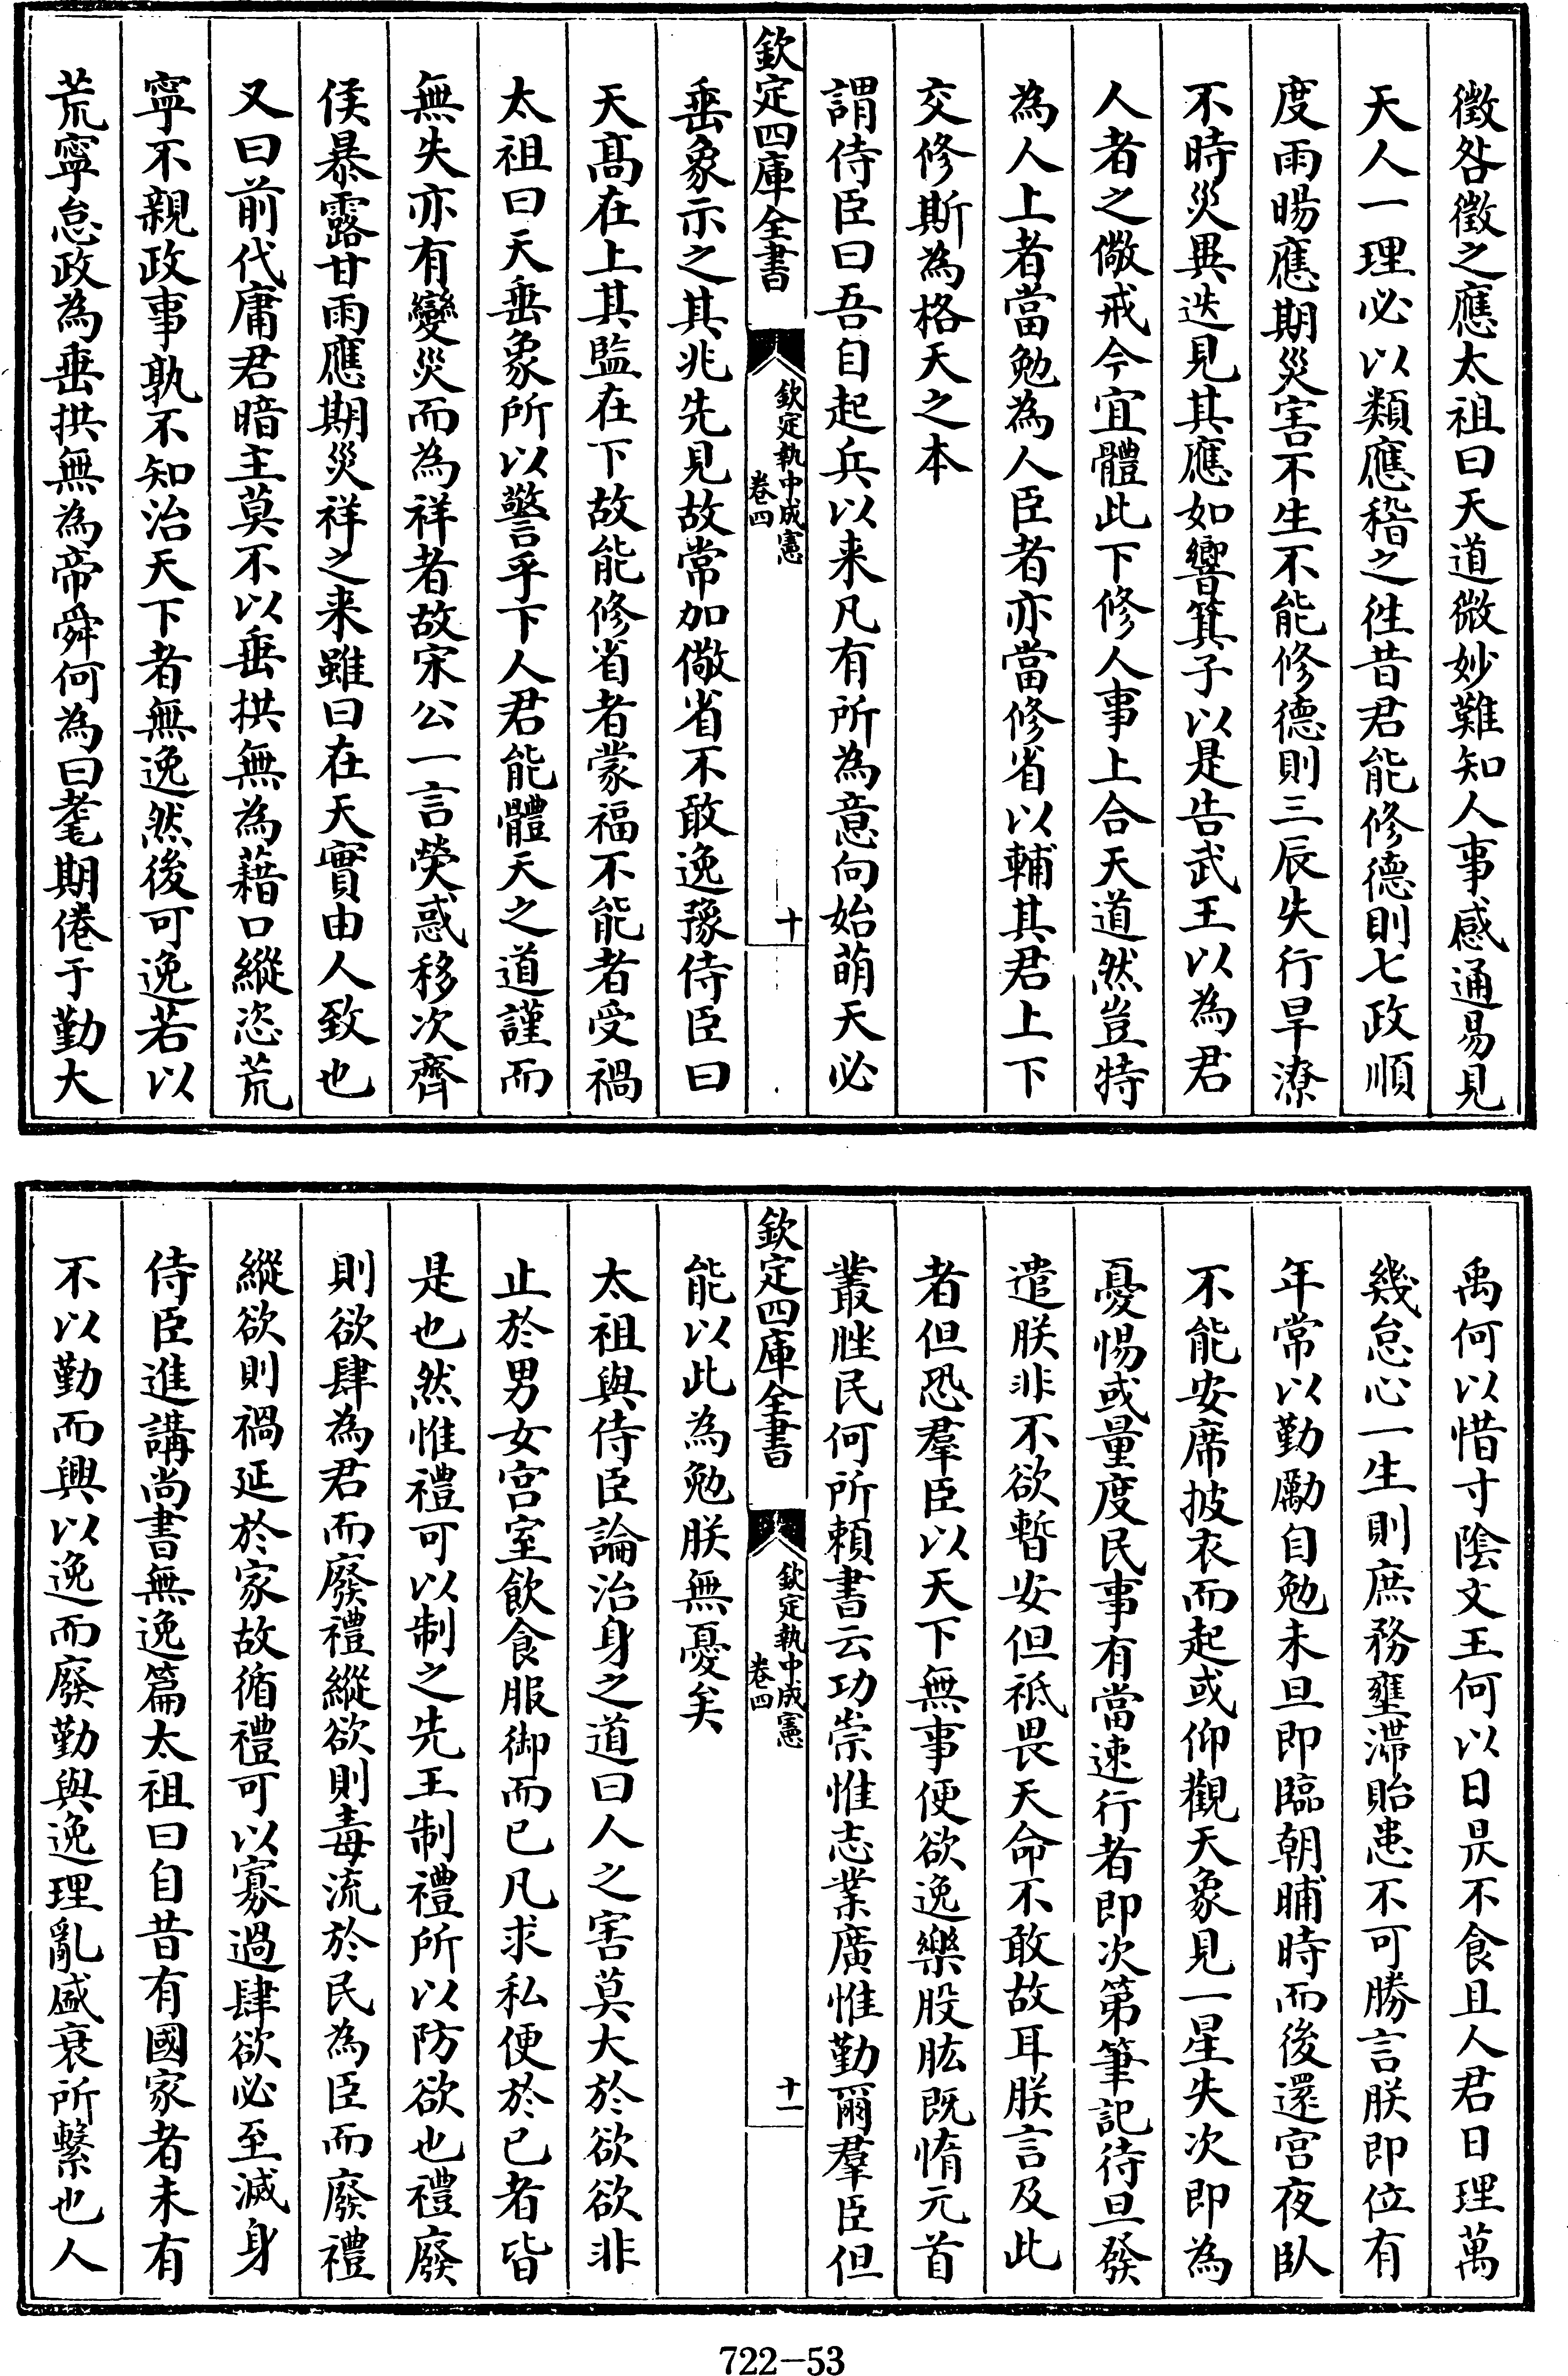 徵咎徵之應太祖曰天道微妙難知人事感通易見
天人一理必以類應稽之徃昔君能修德則七政順
度雨暘應期災害不生不能修德則三辰失行旱潦
不時災異迭見其應如響箕子以是告武王以為君
人者之儆戒今宜體此下修人事上合天道然豈特
為人上者當勉為人臣者亦當修省以輔其君上下
交修斯為格天之本
謂侍臣曰吾自起兵以来凡有所為意向始萌天必
欽定四庫全書
欽定執中成憲
卷四
十
垂象示之其兆先見故常加儆省不敢逸豫侍臣曰
天髙在上其監在下故能修省者蒙福不能者受禍
太祖曰天垂象所以警乎下人君能體天之道謹而
無失亦有變災而為祥者故宋公一言熒惑移次齊
侯暴露甘雨應期災祥之来雖曰在天實由人致也
又曰前代庸君暗主莫不以垂拱無為藉口縱恣荒
寧不親政事孰不知治天下者無逸然後可逸若以
荒寧怠政為垂拱無為帝舜何為曰耄期倦于勤大
禹何以惜寸陰文王何以日昃不食且人君日理萬
幾怠心一生則庶務壅滯貽患不可勝言朕即位有
年常以勤勵自勉未旦即臨朝晡時而後還宫夜臥
不能安席披衣而起或仰觀天象見一星失次即為
憂惕或量度民事有當速行者即次第筆記待旦發
遣朕非不欲暫安但祗畏天命不敢故耳朕言及此
者但恐羣臣以天下無事便欲逸樂股肱既惰元首
叢脞民何所頼書云功崇惟志業廣惟勤爾羣臣但
欽定四庫全書
欽定執中成憲
卷四
十一
能以此為勉朕無憂矣
太祖與侍臣論治身之道曰人之害莫大於欲欲非
止於男女宫室飲食服御而已凡求私便於己者皆
是也然惟禮可以制之先王制禮所以防欲也禮廢
則欲肆為君而廢禮縱欲則毒流於民為臣而廢禮
縱欲則禍延於家故循禮可以寡過肆欲必至滅身
侍臣進講尚書無逸篇太祖曰自昔有國家者未有
不以勤而興以逸而廢勤與逸理亂盛衰所繫也人
722-53